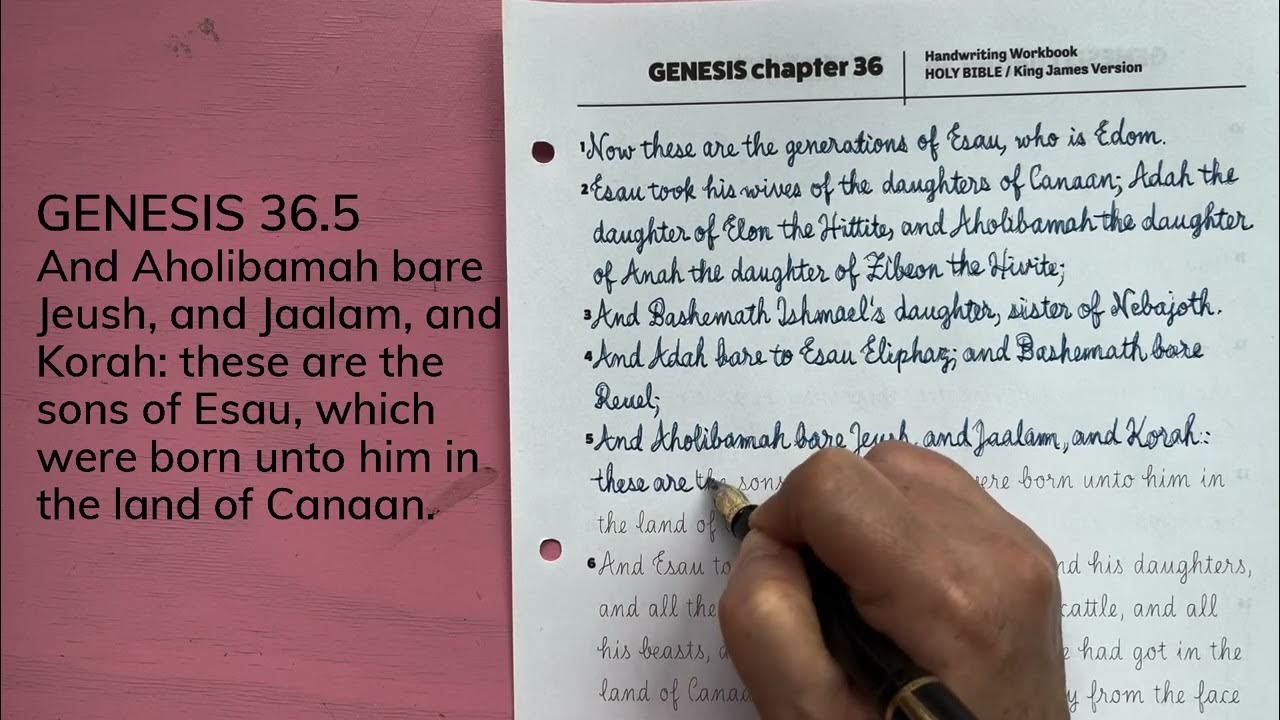 GENESIS 36.5
And Aholibamah bare
Jeush, and Jaalam, and
Korah: these are the
sons of Esau, which
were born unto him in
the land of Canaan.
GENESIS chapter 36
Handwriting Workbook
HOLY BIBLE / King James Version
1 Now these are the generations of Esau, who is Edom.
2 Esau took his wives of the daughters of Canaan; Adah the
daughter of Elon the Hittite, and Aholibamah the daughter
of Anah the daughter of Zibeon the Hivite;
3 And Bashemath Ishmael's daughter, sister of Nebajoth.
4 And Adah bare to Esau Eliphaz; and Bashemath bare
Reuel;
5 And Aholibamah bare Jeush, and Jaalam, and Korah:
these are the sons were born unto him in
the land of
6 And Esau his daughters,
and all the cattle, and all
his beasts, had got in the
land of from the face